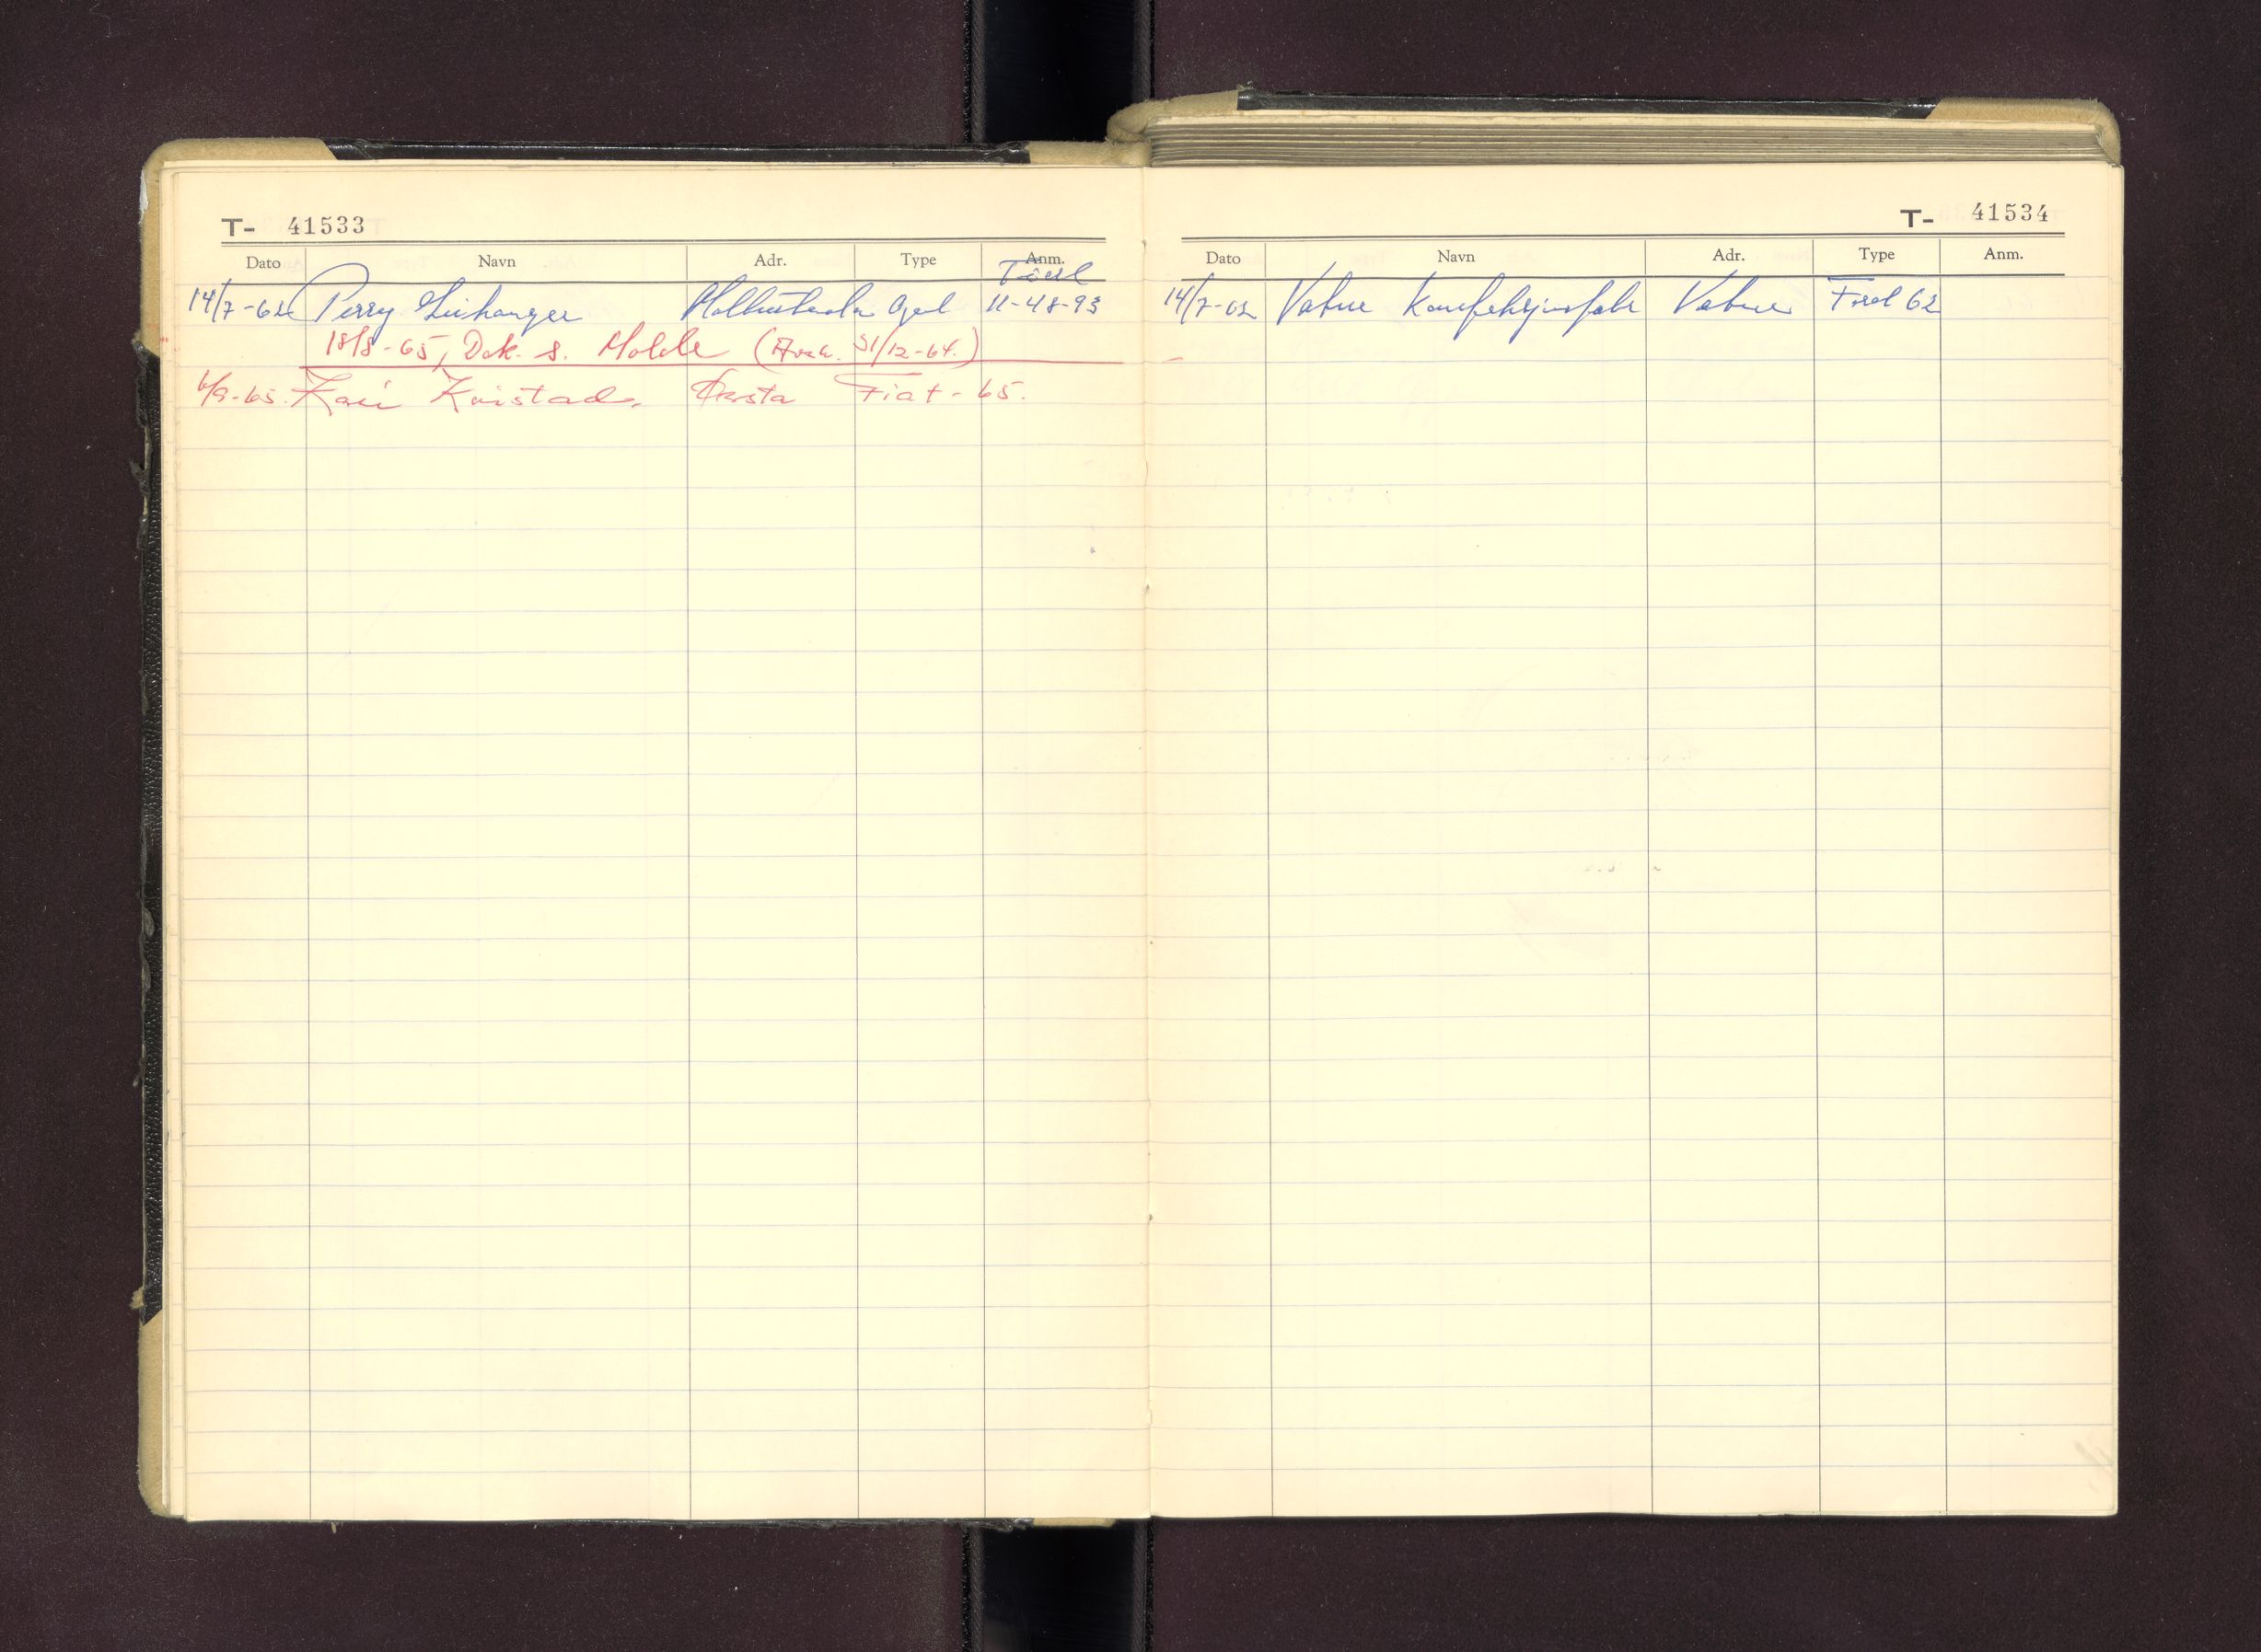 T- 41533
Dato Navn Adr. Type Anm.
Født
14/7-62 Perry Leikanger Opel 11-48-93
18/8-65, Dok. s. Molde (Avsk. 31/12-64.)
6/9-65. Kari Kvistad. Ørsta Fiat - 65.
T- 41534
Dato Navn Adr. Type Anm.
14/7-62 Vatne Konfeksjonsfabr Vatne Ford 62